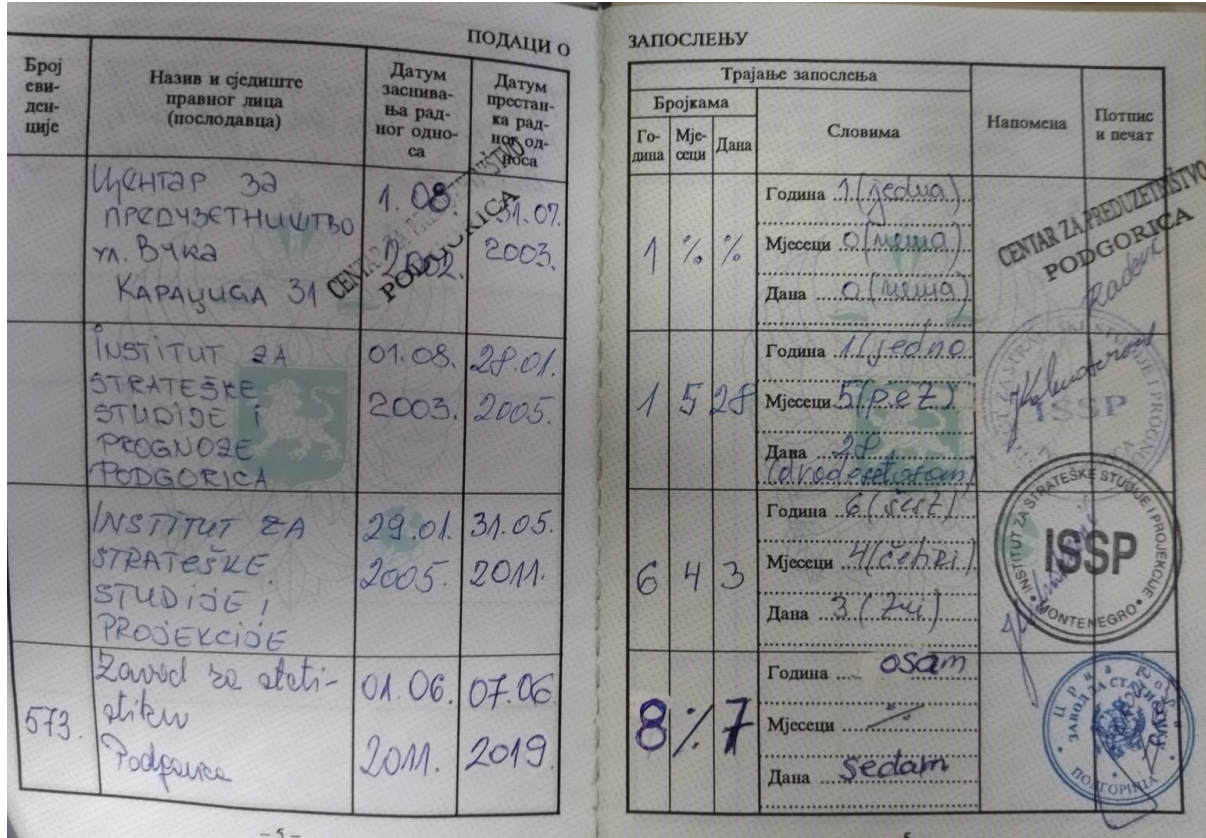 ПОДАЦИ О
Број
еви-
ден-
ције
Назив и сједиште
правног лица
(послодавца)
Датум
заснива-
ња рад-
ног одно-
са
Датум
престан-
ка рад-
ног од-
носа
ЦЕНТАР ЗА
ПРЕДУЗЕТНИШТВО
ул. Вука
КАРАЏИЋА 31
1. 08.
2002.
31.07.
2003.
CENTAR ZA PREDUZETNIŠTVO
PODGORICA
INSTITUT ZA
STRATEŠKE
STUDIJE i
PROGNOZE
PODGORICA
01.08.
2003.
28.01.
2005.
INSTITUT ZA
STRATEŠKE
STUDIJE i
PROJEKCIJE
29.01.
2005.
31.05.
2011.
573.
Zavod za stati-
stiku
Podgorica
01.06.
2011.
07.06
2019.
– 5 –
ЗАПОСЛЕЊУ
Трајање запослења
Бројкама
Го-
дина
Мје-
сеци
Дана
Словима
Напомена
Потпис
и печат
1 % %
Година 1 (jedna)
Мјесеци 0 (nema)
Дана 0 (nema)
CENTAR ZA PREDUZETNIŠTVO
PODGORICA
1 5 28
Година 1 (jedna
Мјесеци 5 (pet)
Дана 28
(dvadesetosam)
ISSP
6 4 3
Година 6 (šest)
Мјесеци 4 (četiri)
Дана 3 (tri)
INSTITUT ZA STRATEŠKE STUDIJE I PROJEKCIJE
ISSP
MONTENEGRO
8 % 7
Година osam
Мјесеци %
Дана sedam
Црна Гора
ЗАВОД ЗА СТАТИСТИКУ
ПОДГОРИЦА
5